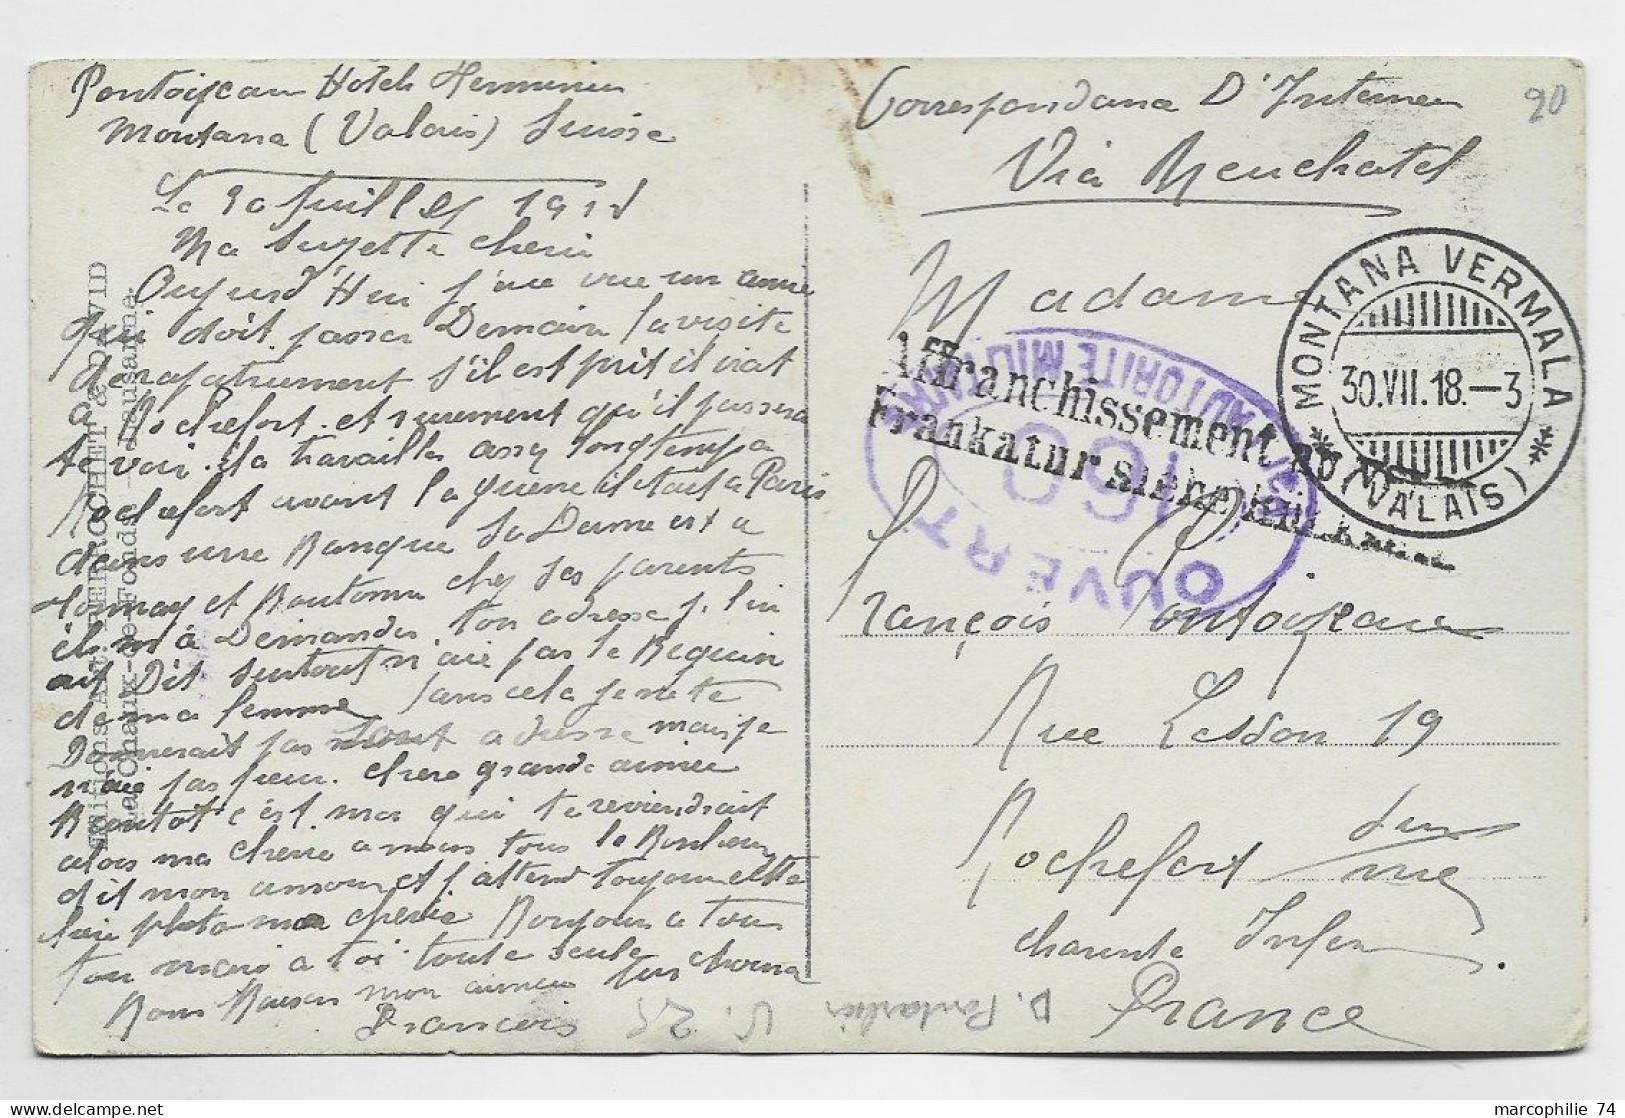 Pontoizeau Hotel
Montana (Valais) Suisse
Le 30 Juillet 1918
Ma Suzette cherie
Oujourd'Hui j'ai vue un amie
qui doit passer Demain la visite
de rapatriement s'il est prit il irat
a Rochefort et surement qu'il passera
te voir. il a travailler assez longtemps a
Rochefort avant la guerre il etait a Paris
dans une Banque Sa Dame est a
et chez ses parents
il m'a Demander ton adresse je l'ai
ait Dit surtout n'aie pas le Beguin
de ma femme sans cela je ne te
Donnerait pas adresse mais je
n'aie pas peur. chere grande aimée
Bientot c'est moi qui te reviendrait
alors ma cherie a nous tous le Bonheur
dit mon amour et j'attend toujour cette
ma cherie Bonjour a tous
mais a toi toute seule
Bons Baisers mon aimée
Francois
Editions Art. PERROCHET & DAVID
La Chaux-de-Fonds - Lausanne.
Correspondance D'Interner
Via Neuchatel
90
Madame
MONTANA VERMALA
30.VII.18.-3
(VALAIS)
Affranchissement au
Frankatur siehe
OUVERT
AUTORITE MILITAIRE
160
François Pontoizeau
Rue Lesson 19
Rochefort sur
mer
charente Infer
France
D. Pontarlier
V. 25
marcophilie 74